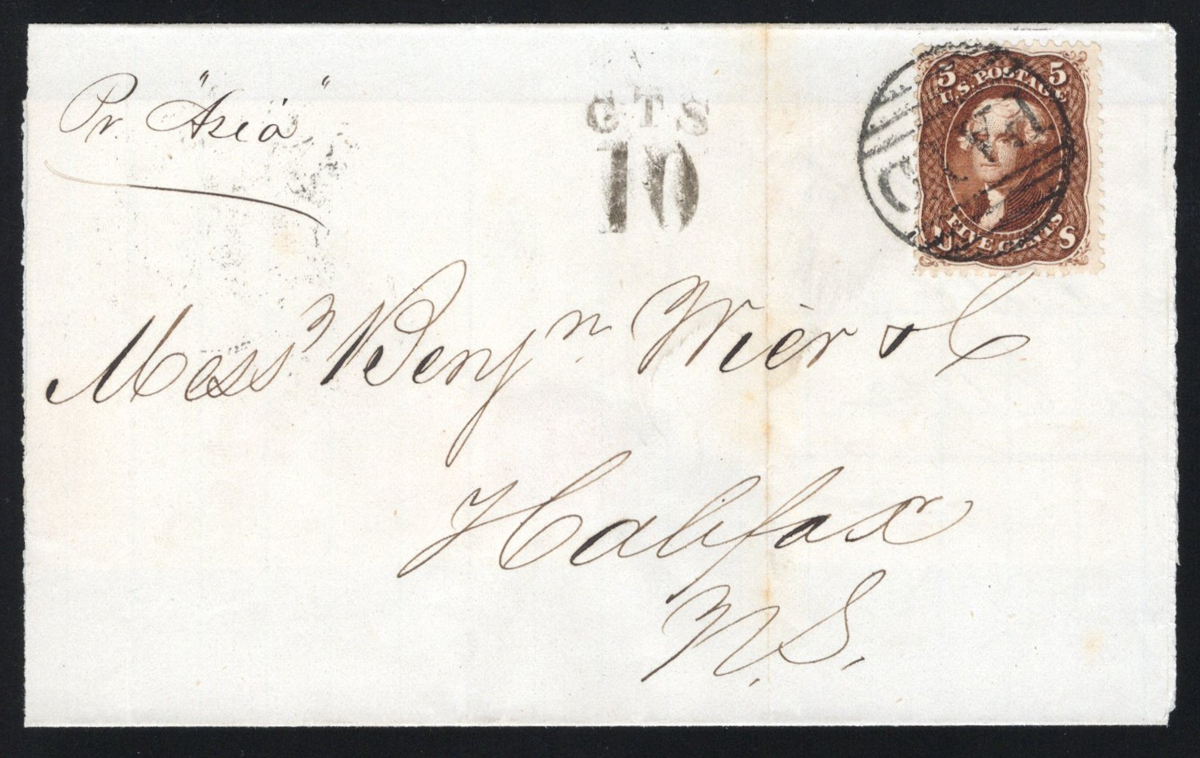 Pr. "Asia"
CTS
10
5 5
U.S. POSTAGE
FIVE CENTS
U S
PAID
Messrs Benjn Wier & C
Halifax
N.S.